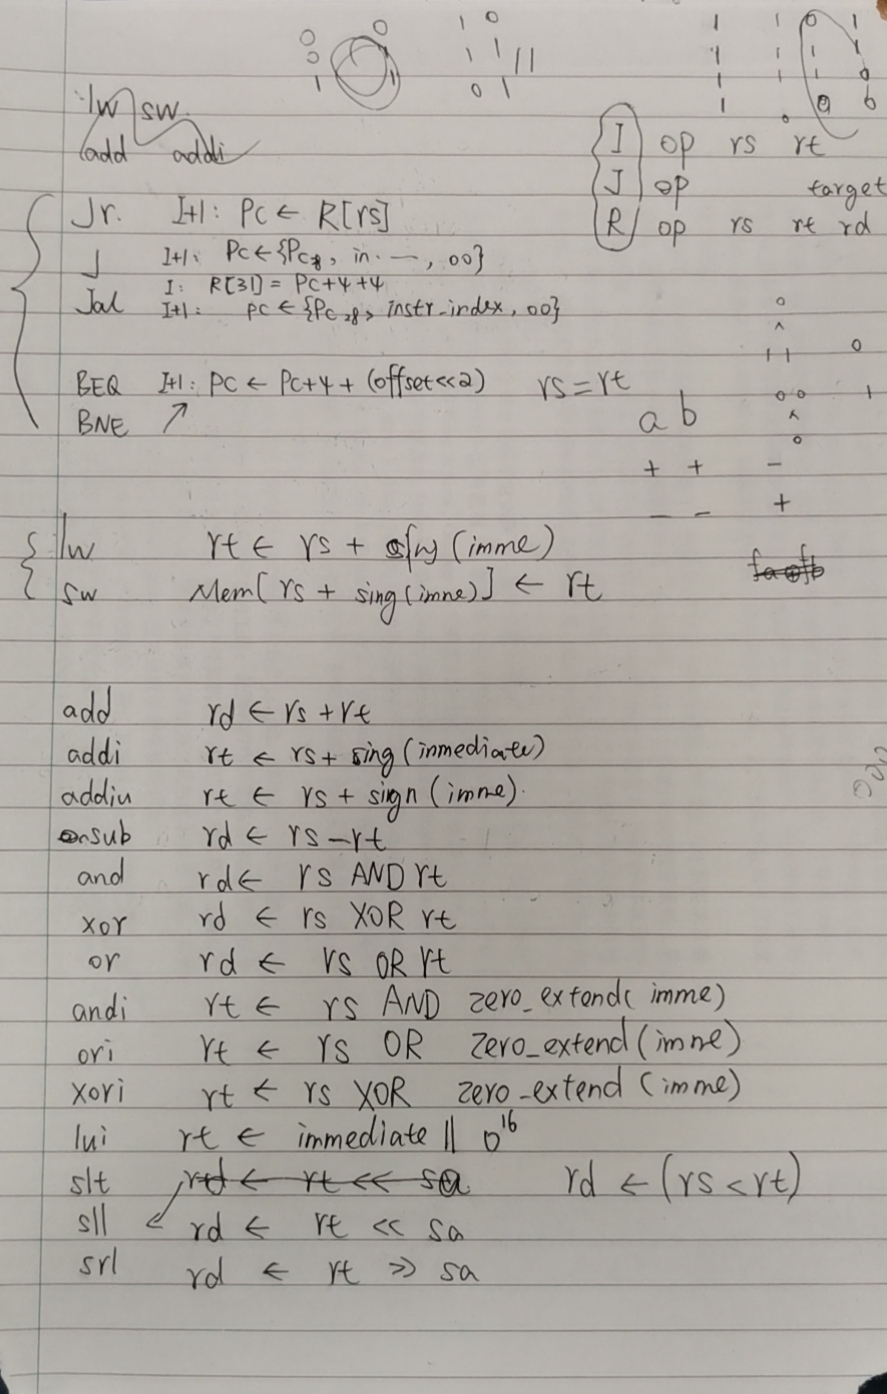 lw sw.
add addi
I op rs rt
J op target
R op rs rt rd
Jr. I+1: PC ← R[rs]
J I+1: PC ← {PC, in. —, 00}
I: R[31] = PC+4+4
Jal I+1: PC ← {PC28, instr_index, 00}
BEQ I+1: PC ← PC+4 + (offset<<2) rs = rt
BNE ↗
a b
+ + -
+
- -
lw rt ← rs + (imme)
sw Mem[rs + sing(imme)] ← rt
add rd ← rs + rt
addi rt ← rs + sing(inmediate)
addiu rt ← rs + sign (imme).
sub rd ← rs - rt
and rd ← rs AND rt
xor rd ← rs XOR rt
or rd ← rs OR rt
andi rt ← rs AND zero_extend( imme)
ori rt ← rs OR zero_extend(imme)
xori rt ← rs XOR zero_extend (imme)
lui rt ← immediate || 0^16
slt rd ← rt << sa rd ← (rs < rt)
sll rd ← rt << sa
srl rd ← rt >> sa